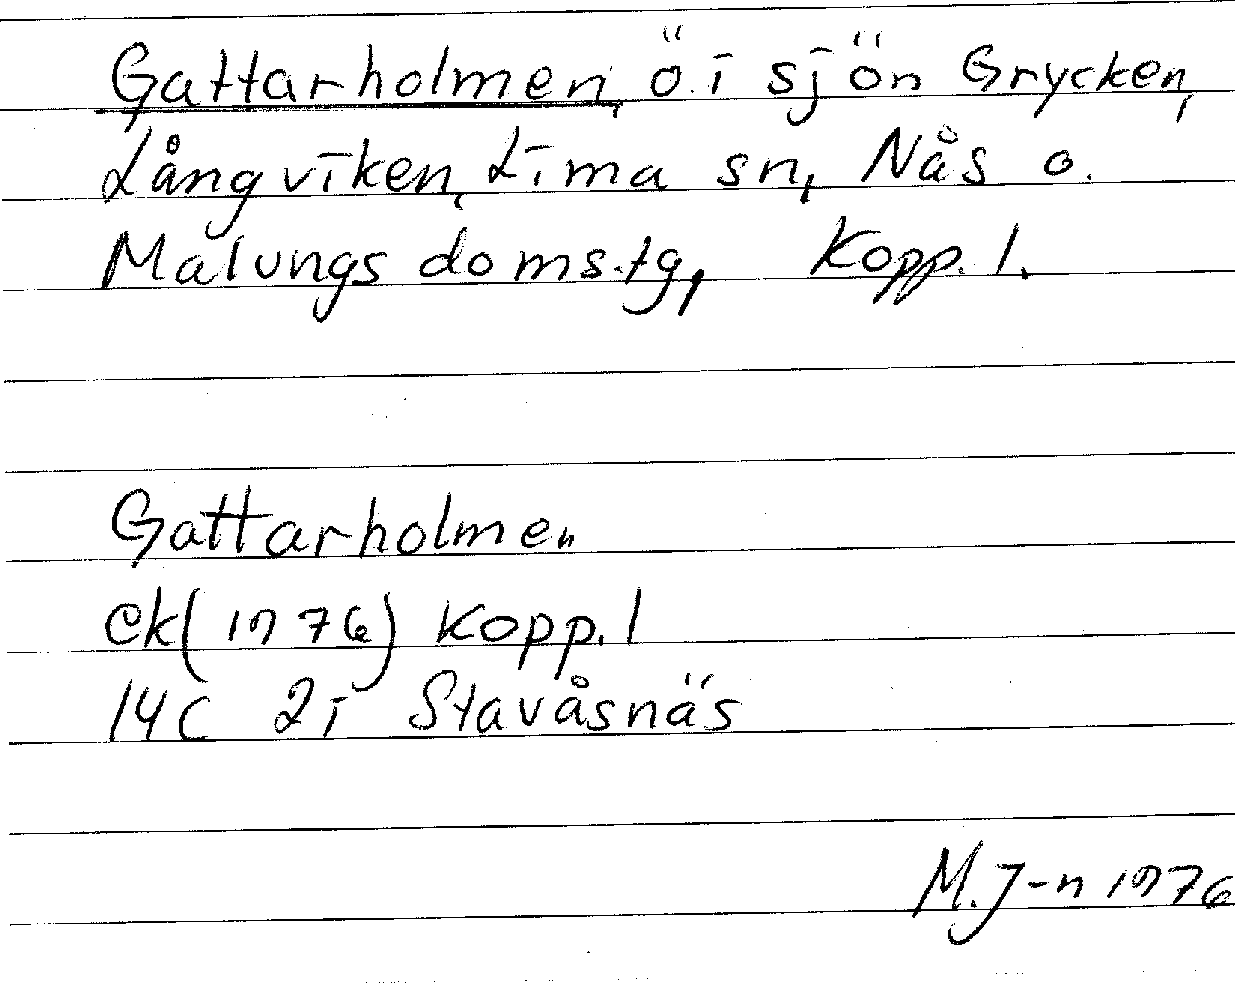 Gattarholmen, ö i sjön Grycken,
Långviken, Lima sn, Nås o.
Malungs doms.tg, Kopp. l.
Gattarholmen
ek(1976) Kopp. l
14C 2i Stavåsnäs
M. J-n 1976